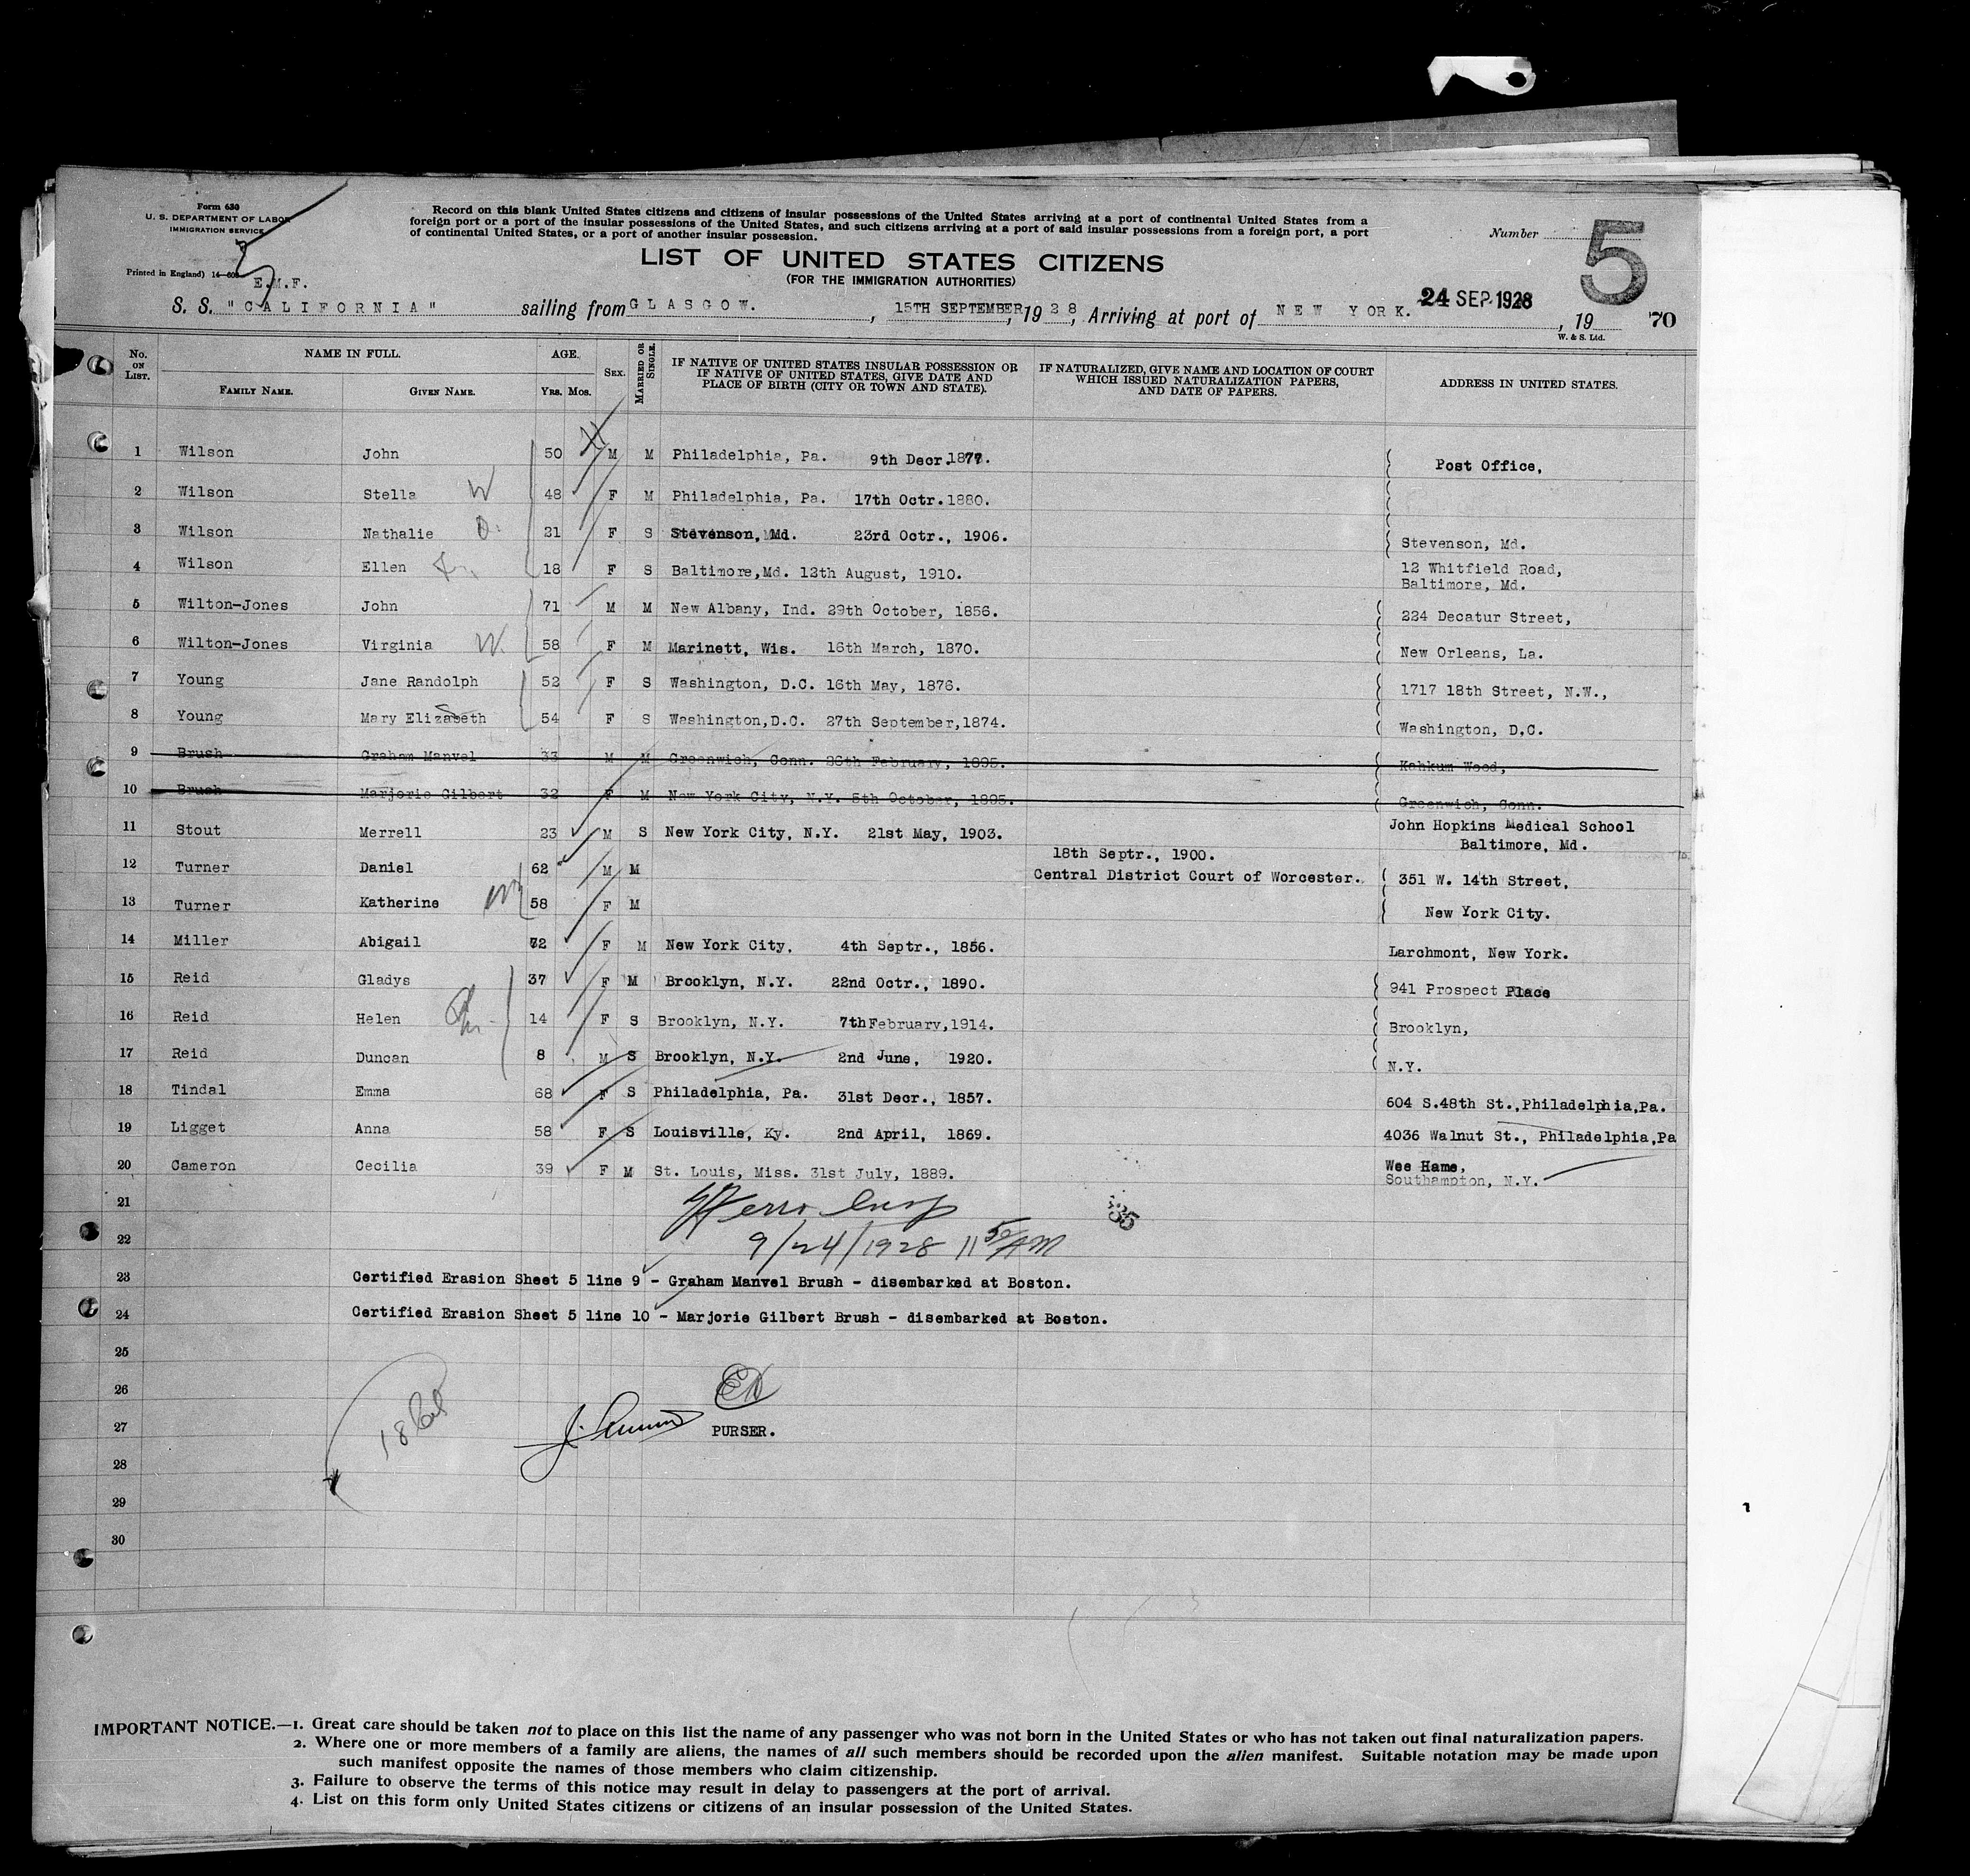 Form 630
U. S. DEPARTMENT OF LABOR
IMMIGRATION SERVICE
Printed in England) 14—60
E.M.F.
Record on this blank United States citizens and citizens of insular possessions of the United States arriving at a port of continental United States from a
foreign port or a port of the insular possessions of the United States, and such citizens arriving at a port of said insular possessions from a foreign port, a port
of continental United States, or a port of another insular possession.
Number 5
LIST OF UNITED STATES CITIZENS
(FOR THE IMMIGRATION AUTHORITIES)
S. S. "CALIFORNIA" sailing from GLASGOW. , 15TH SEPTEMBER, 1928, Arriving at port of NEW YORK. 24 SEP 1928, 19 70
W. & S. Ltd.
No. ON LIST. NAME IN FULL. FAMILY NAME. GIVEN NAME. AGE. YRS. MOS. SEX. MARRIED OR SINGLE. IF NATIVE OF UNITED STATES INSULAR POSSESSION OR IF NATIVE OF UNITED STATES, GIVE DATE AND PLACE OF BIRTH (CITY OR TOWN AND STATE). IF NATURALIZED, GIVE NAME AND LOCATION OF COURT WHICH ISSUED NATURALIZATION PAPERS, AND DATE OF PAPERS. ADDRESS IN UNITED STATES.
1 Wilson John 50 M M Philadelphia, Pa. 9th Decr. 1877. Post Office,
2 Wilson Stella W 48 F M Philadelphia, Pa. 17th Octr. 1880.
3 Wilson Nathalie D. 21 F S Stevenson, Md. 23rd Octr., 1906. Stevenson, Md.
4 Wilson Ellen 18 F S Baltimore, Md. 12th August, 1910. 12 Whitfield Road,
Baltimore, Md.
5 Wilton-Jones John 71 M M New Albany, Ind. 29th October, 1856. 224 Decatur Street,
6 Wilton-Jones Virginia W. 58 F M Marinett, Wis. 16th March, 1870. New Orleans, La.
7 Young Jane Randolph 52 F S Washington, D.C. 16th May, 1876. 1717 18th Street, N.W.,
8 Young Mary Elizabeth 54 F S Washington, D.C. 27th September, 1874. Washington, D.C.
9 Brush Graham Manvel 33 M M Greenwich, Conn. 26th February, 1895. Kahkum Wood,
10 Brush Marjorie Gilbert 32 F M New York City, N.Y. 5th October, 1895. Greenwich, Conn.
11 Stout Merrell 23 M S New York City, N.Y. 21st May, 1903. John Hopkins Medical School
Baltimore, Md.
18th Septr., 1900.
12 Turner Daniel 62 M M Central District Court of Worcester. 351 W. 14th Street,
13 Turner Katherine W 58 F M New York City.
14 Miller Abigail 72 F M New York City, 4th Septr., 1856. Larchmont, New York.
15 Reid Gladys 37 F M Brooklyn, N.Y. 22nd Octr., 1890. 941 Prospect Place
16 Reid Helen 14 F S Brooklyn, N.Y. 7th February, 1914. Brooklyn,
17 Reid Duncan 8 M S Brooklyn, N.Y. 2nd June, 1920. N.Y.
18 Tindal Emma 68 F S Philadelphia, Pa. 31st Decr., 1857. 604 S.48th St., Philadelphia, Pa.
19 Ligget Anna 58 F S Louisville, Ky. 2nd April, 1869. 4036 Walnut St., Philadelphia, Pa
20 Cameron Cecilia 39 F M St. Louis, Miss. 31st July, 1889. Wee Hame,
Southampton, N.Y.
21
22 9/24/1928 11 50 AM
23 Certified Erasion Sheet 5 line 9 - Graham Manvel Brush - disembarked at Boston.
24 Certified Erasion Sheet 5 line 10 - Marjorie Gilbert Brush - disembarked at Boston.
25
26
27 PURSER.
28
29
30
IMPORTANT NOTICE.—1. Great care should be taken not to place on this list the name of any passenger who was not born in the United States or who has not taken out final naturalization papers.
2. Where one or more members of a family are aliens, the names of all such members should be recorded upon the alien manifest. Suitable notation may be made upon
such manifest opposite the names of those members who claim citizenship.
3. Failure to observe the terms of this notice may result in delay to passengers at the port of arrival.
4. List on this form only United States citizens or citizens of an insular possession of the United States.